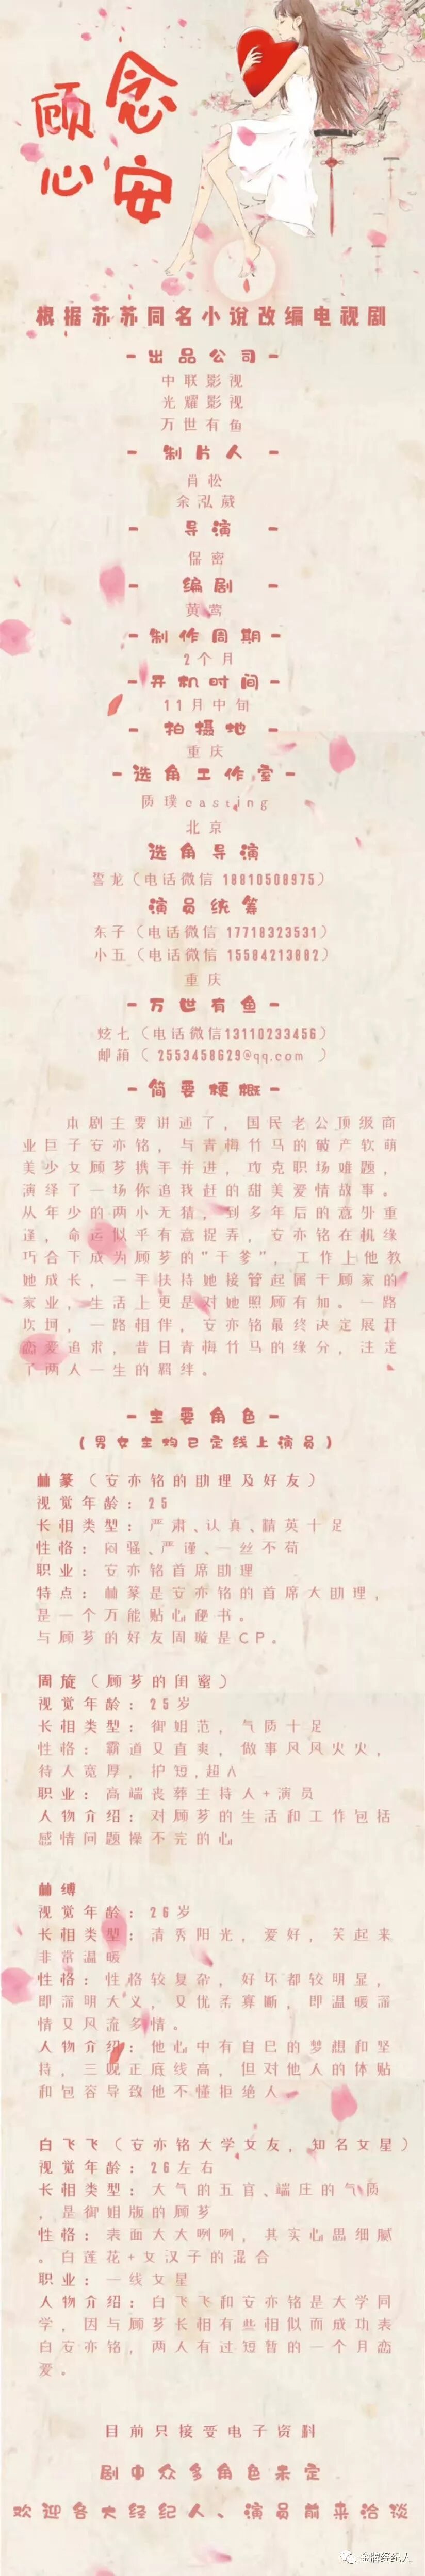 顾念
心安
根据苏苏同名小说改编电视剧
-出品公司-
中联影视
光耀影视
万世有鱼
- 制片人 -
肖松
余泓葳
- 导演 -
保密
- 编剧 -
黄莺
-制作周期-
2个月
-开机时间-
11月中旬
- 拍摄地 -
重庆
-选角工作室-
质璞casting
北京
选角导演
昝龙（电话微信 18810508975）
演员统筹
东子（电话微信 17718323531）
小五（电话微信 15584213882）
重庆
-万世有鱼-
炫七（电话微信13110233456）
邮箱（ 2553458629@qq.com ）
-简要梗概-
本剧主要讲述了，国民老公顶级商
业巨子安亦铭，与青梅竹马的破产软萌
美少女顾芗携手并进，攻克职场难题，
演绎了一场你追我赶的甜美爱情故事。
从年少的两小无猜，到多年后的意外重
逢，命运似乎有意捉弄，安亦铭在机缘
巧合下成为顾芗的“干爹”，工作上他教
她成长，一手扶持她接管起属于顾家的
家业，生活上更是对她照顾有加。一路
坎坷，一路相伴，安亦铭最终决定展开
恋爱追求，昔日青梅竹马的缘分，注定
了两人一生的羁绊。
-主要角色-
(男女主均已定线上演员)
林篆（安亦铭的助理及好友）
视觉年龄：25
长相类型：严肃、认真、精英十足
性格：闷骚、严谨、一丝不苟
职业：安亦铭首席助理
特点：林篆是安亦铭的首席大助理，
是一个万能贴心秘书。
与顾芗的好友周璇是CP。
周旋（顾芗的闺蜜）
视觉年龄：25岁
长相类型：御姐范，气质十足
性格：霸道又直爽，做事风风火火，
待人宽厚，护短,超A
职业：高端丧葬主持人+演员
人物介绍：对顾芗的生活和工作包括
感情问题操不完的心
林缚
视觉年龄：26岁
长相类型：清秀阳光，爱好，笑起来
非常温暖
性格：性格较复杂，好坏都较明显，
即深明大义，又优柔寡断，即温暖深
情又风流多情。
人物介绍：他心中有自己的梦想和坚
持，三观正底线高，但对他人的体贴
和包容导致他不懂拒绝人
白飞飞（安亦铭大学女友，知名女星）
视觉年龄：26左右
长相类型：大气的五官、端庄的气质
，是御姐版的顾芗
性格：表面大大咧咧，其实心思细腻
。白莲花+女汉子的混合
职业：一线女星
人物介绍：白飞飞和安亦铭是大学同
学，因与顾芗长相有些相似而成功表
白安亦铭，两人有过短暂的一个月恋
爱。
目前只接受电子资料
剧中众多角色未定
欢迎各大经纪人、演员前来洽谈
金牌经纪人